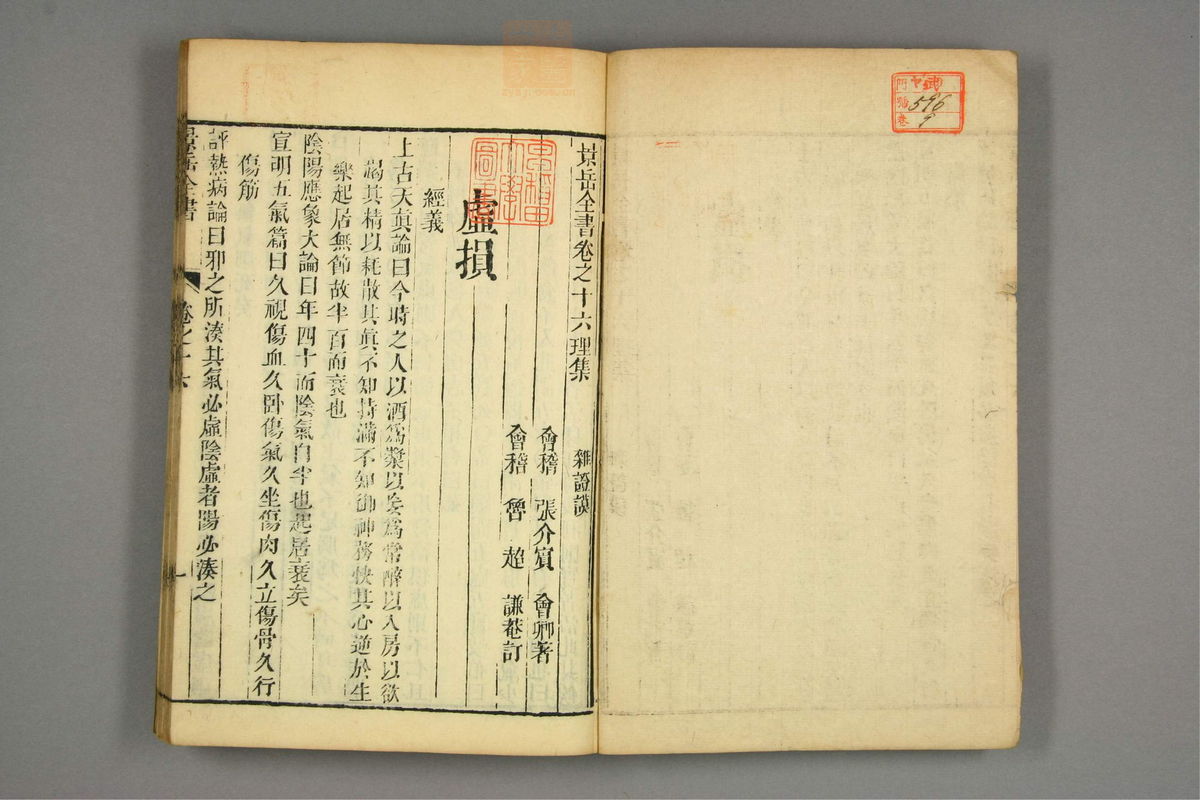 景岳全書卷之十六理集 雜證謨
會稽 張介賓 會卿著
會稽 魯 超 謙菴訂
虛損
經義
上古天眞論曰今時之人以酒爲漿以妄爲常醉以入房以欲
竭其精以耗散其眞不知持滿不知御神務快其心逆於生
樂起居無節故半百而衰也
陰陽應象大論曰年四十而陰氣自半也起居衰矣
宣明五氣篇曰久視傷血久卧傷氣久坐傷肉久立傷骨久行
傷筋
評熱病論曰邪之所湊其氣必虛陰虛者陽必湊之
景岳全書 卷之十六 一
596
9